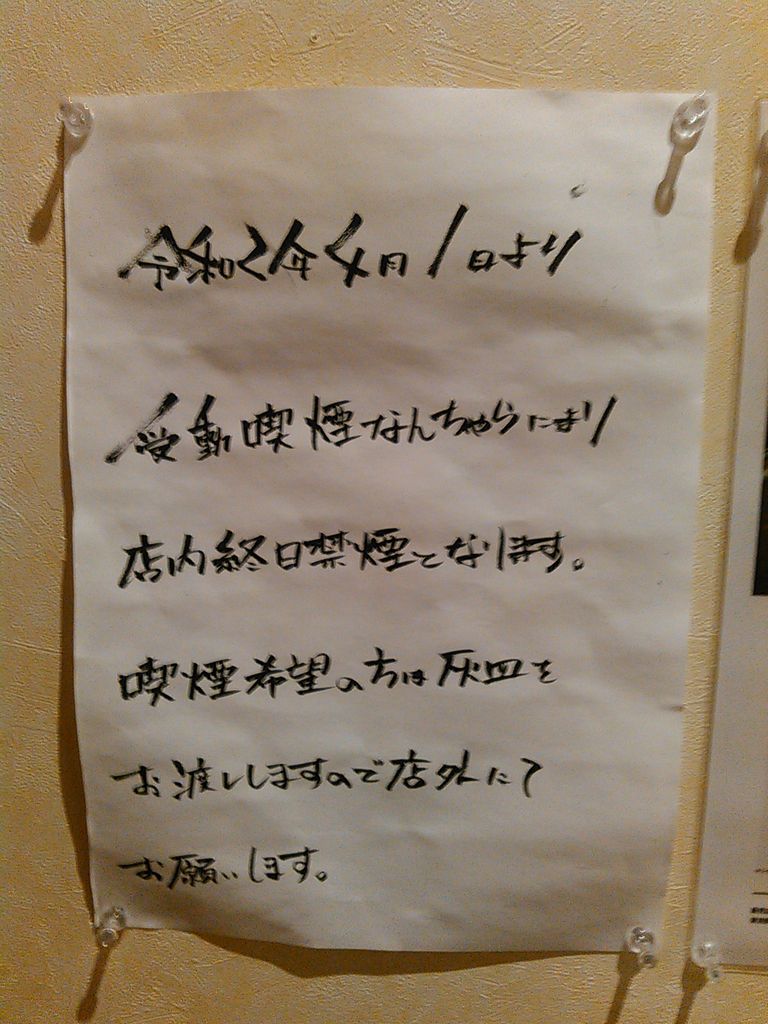 令和2年4月1日より
受動喫煙なんちゃらにより
店内終日禁煙となります。
喫煙希望の方は灰皿を
お渡ししますので店外にて
お願いします。